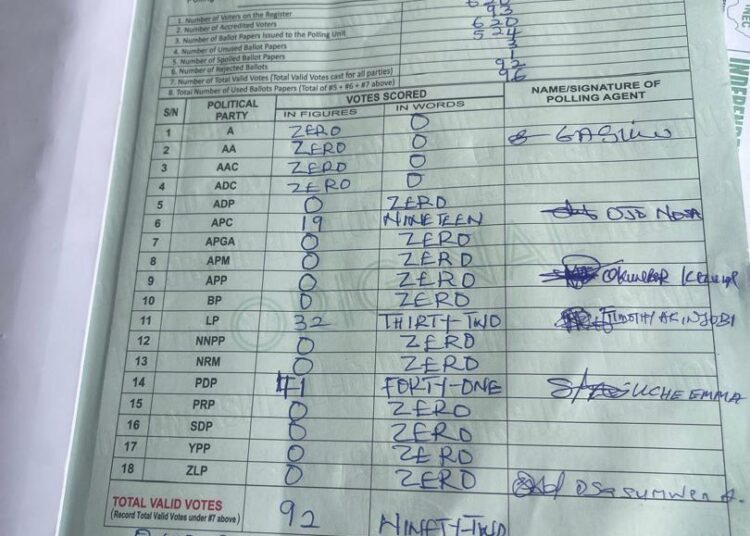 93
1. Number of Voters on the Register
2. Number of Accredited Voters
3. Number of Ballot Papers Issued to the Polling Unit 620
4. Number of Unused Ballot Papers 524
5. Number of Spoiled Ballot Papers 3
6. Number of Rejected Ballots 1
7. Number of Total Valid Votes (Total Valid Votes cast for all parties) 92
8. Total Number of Used Ballots Papers (Total of #5 + #6 + #7 above) 96
S/N POLITICAL PARTY VOTES SCORED NAME/SIGNATURE OF POLLING AGENT
IN FIGURES IN WORDS
1 A ZERO 0
2 AA ZERO 0
3 AAC ZERO 0
4 ADC ZERO 0
5 ADP 0 ZERO
6 APC 19 NINETEEN OJO NOSA
7 APGA 0 ZERO
8 APM 0 ZERO
9 APP 0 ZERO
10 BP 0 ZERO
11 LP 32 THIRTY-TWO TIMOTHY AKINJOBI
12 NNPP 0 ZERO
13 NRM 0 ZERO
14 PDP 41 FORTY-ONE UCHE EMMA
15 PRP 0 ZERO
16 SDP 0 ZERO
17 YPP 0 ZERO
18 ZLP 0 ZERO
TOTAL VALID VOTES 92 NINETY-TWO
(Record Total Valid Votes under #7 above)
ORIGINAL